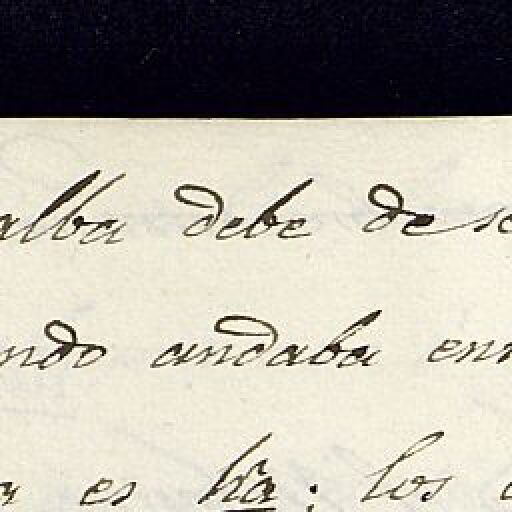 alba debe de se
ndo andaba enr
a es hra; los